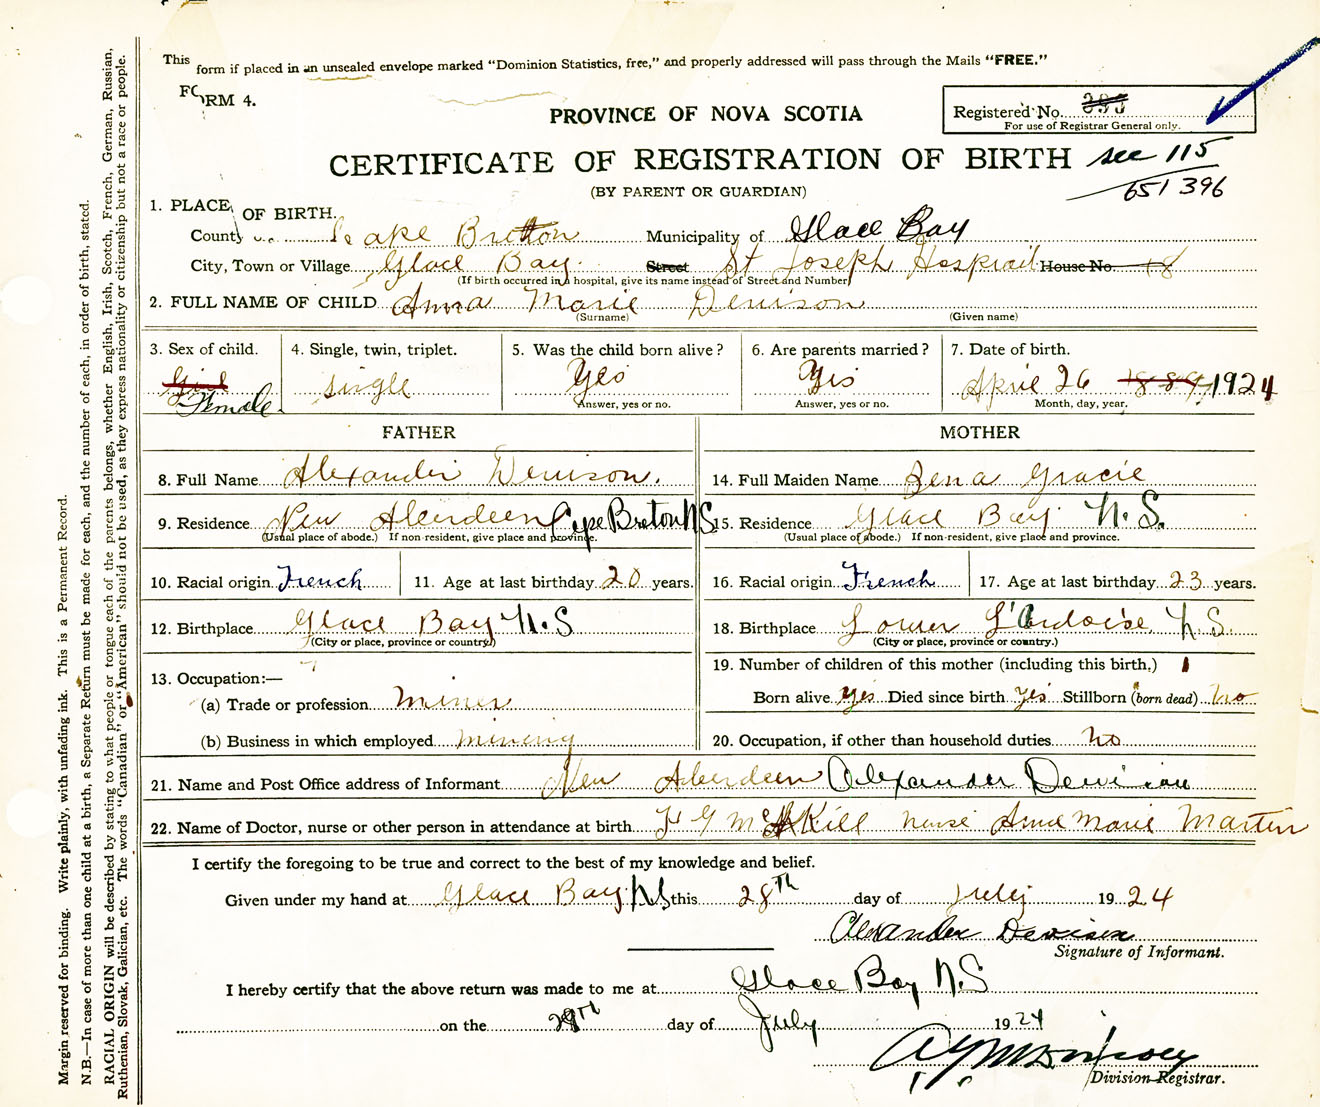 This form if placed in an unsealed envelope marked "Dominion Statistics, free," and properly addressed will pass through the Mails "FREE."
FORM 4.
PROVINCE OF NOVA SCOTIA
Registered No.
For use of Registrar General only.
CERTIFICATE OF REGISTRATION OF BIRTH see 115
(BY PARENT OR GUARDIAN) 651 396
1. PLACE OF BIRTH.
County Cape Breton Municipality of Glace Bay
City, Town or Village Glace Bay Street St Joseph Hospital House No. 18
(If birth occurred in a hospital, give its name instead of Street and Number)
2. FULL NAME OF CHILD Anna Marie Denison
(Surname) (Given name)
3. Sex of child. 4. Single, twin, triplet. 5. Was the child born alive? 6. Are parents married? 7. Date of birth.
Girl Female single Yes Yes April 26 1924
Answer, yes or no. Answer, yes or no. Month, day, year.
FATHER MOTHER
8. Full Name Alexander Denison. 14. Full Maiden Name Zena Gracie
9. Residence New Aberdeen Cape Breton N S 15. Residence Glace Bay N. S.
(Usual place of abode.) If non-resident, give place and province. (Usual place of abode.) If non-resident, give place and province.
10. Racial origin French 11. Age at last birthday 20 years. 16. Racial origin French 17. Age at last birthday 23 years.
12. Birthplace Glace Bay N. S 18. Birthplace Lower L'Ardoise N. S.
(City or place, province or country) (City or place, province or country.)
13. Occupation:— 19. Number of children of this mother (including this birth.) 1
(a) Trade or profession miner Born alive yes Died since birth yes Stillborn (born dead) no
(b) Business in which employed mining 20. Occupation, if other than household duties no
21. Name and Post Office address of Informant New Aberdeen Alexander Devison
22. Name of Doctor, nurse or other person in attendance at birth nurse Anna Marie Martin
I certify the foregoing to be true and correct to the best of my knowledge and belief.
Given under my hand at Glace Bay NS this 28th day of July 1924
Alexander Devison
Signature of Informant.
I hereby certify that the above return was made to me at Glace Bay N.S
on the 28th day of July 1924
Division Registrar.
Margin reserved for binding. Write plainly, with unfading ink. This is a Permanent Record.
N.B.—In case of more than one child at a birth, a Separate Return must be made for each, and the number of each, in order of birth, stated.
RACIAL ORIGIN will be described by stating to what people or tongue each of the parents belongs, whether English, Irish, Scotch, French, German, Russian,
Ruthenian, Slovak, Galician, etc. The words "Canadian" or "American" should not be used, as they express nationality or citizenship but not a race or people.